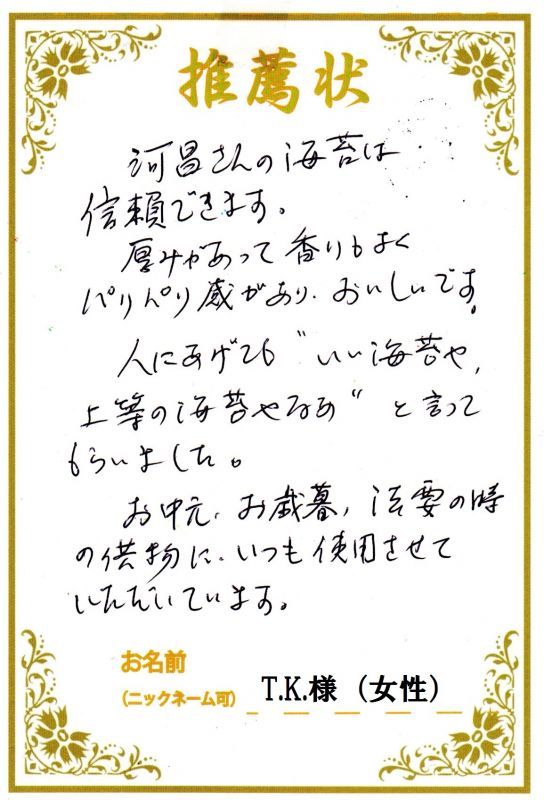 推薦状
河昌さんの海苔は
信頼できます。
厚みがあって香りもよく
パリパリ感があり、おいしいです。
人にあげても"いい海苔や、
上等の海苔やなあ"と言って
もらいました。
お中元、お歳暮、法要の時
の供物に、いつも使用させて
いただいています。
お名前
(ニックネーム可) T.K.様（女性）